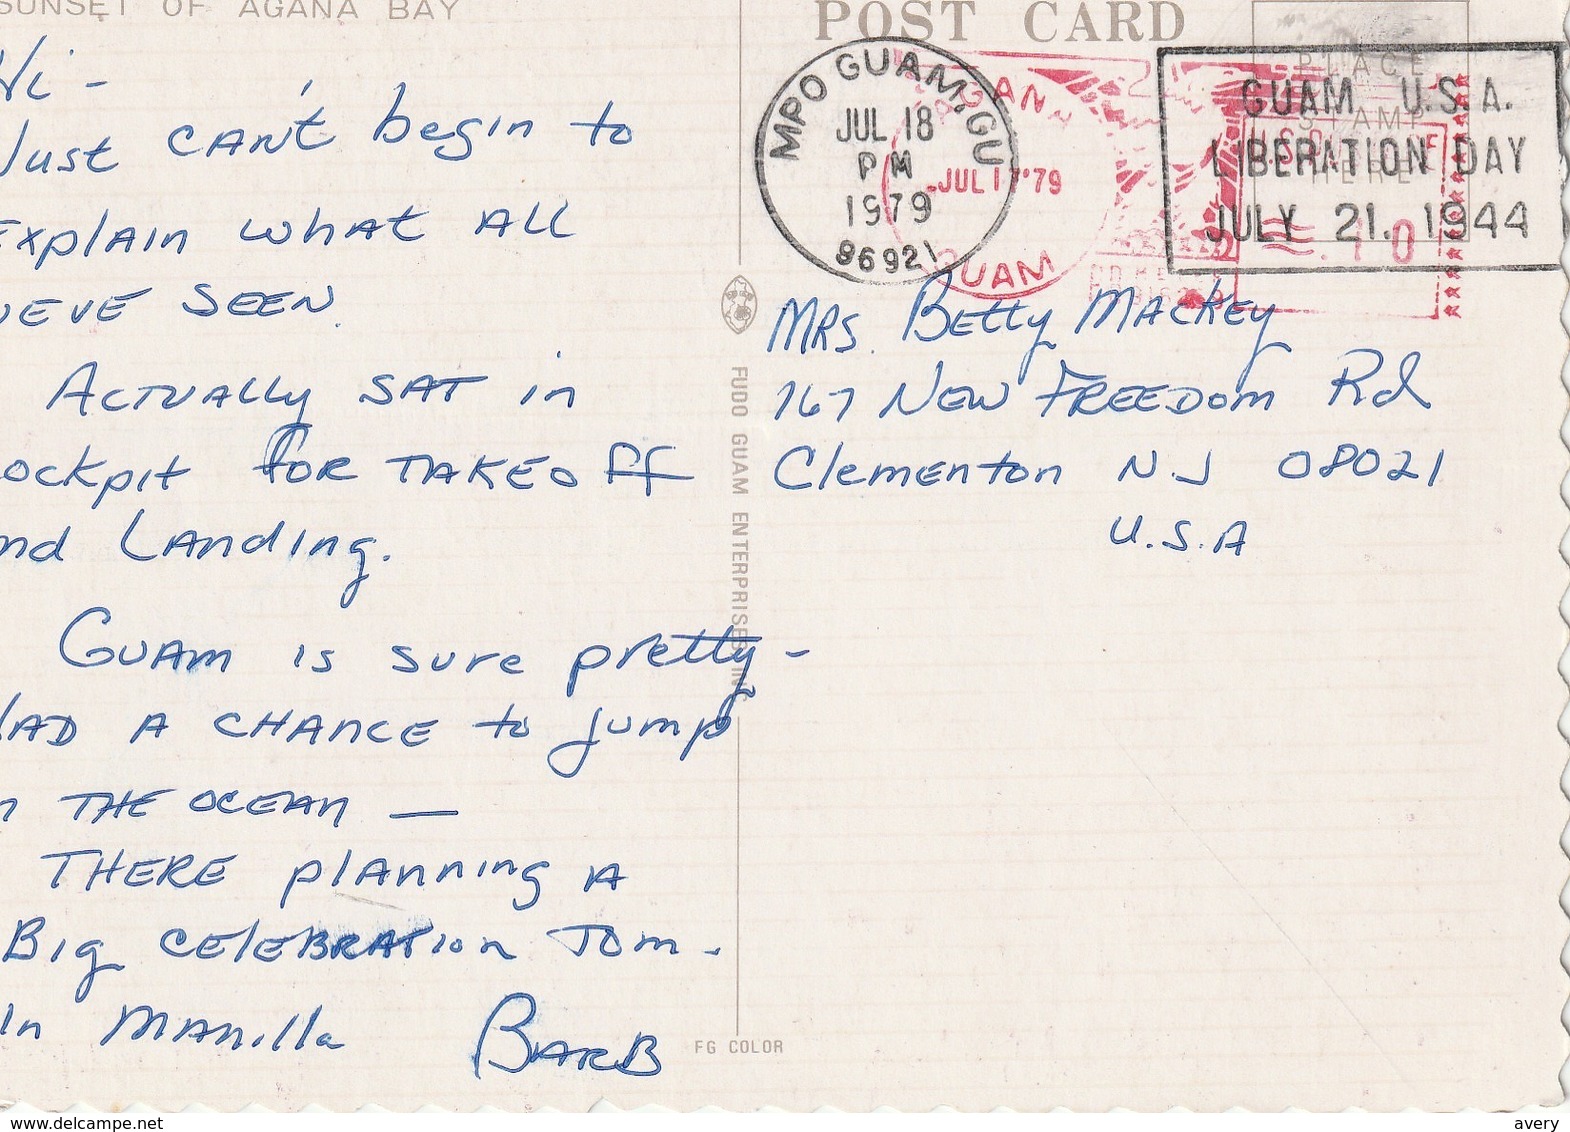 SUNSET OF AGANA BAY
Hi -
Just CAN't begin to
Explain what All
WEVE SEEN.
ACTUALLY SAT in
ockpit FOR TAKEOff
nd LAnding.
GUAM is sure pretty -
HAD A CHANCE to jump
n THE OCEAN —
THERE planning A
Big CElEBRATion Tom.
In MANilla
BARB
FUDO GUAM ENTERPRISES INC
FG COLOR
POST CARD
PLACE
STAMP
HERE
MPO GUAM, GU
JUL 18
PM
1979
96921
AGANA
JUL 17 '79
GUAM
GUAM U.S.A.
LIBERATION DAY
JULY 21. 1944
.10
MRS. Betty MACKEY
767 NEW FREEDOM Rd
Clementon NJ 08021
U.S.A
delcampe.net
avery